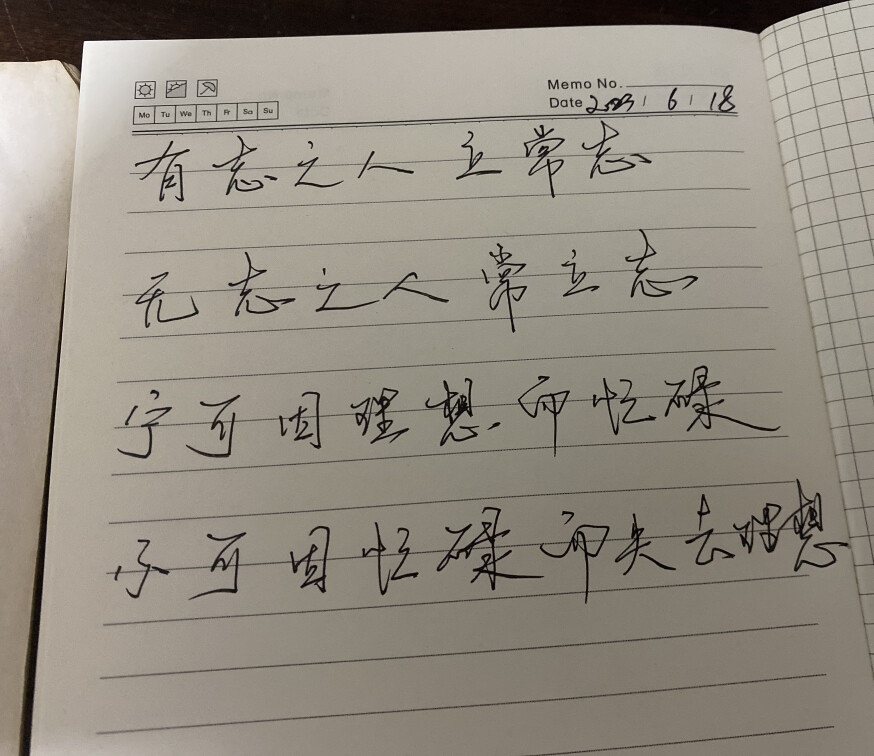 Memo No.
Date 2023 / 6 / 18
Mo Tu We Th Fr Sa Su
有志之人 立常志
无志之人 常立志
宁可因理想而忙碌
不可因忙碌而失去理想